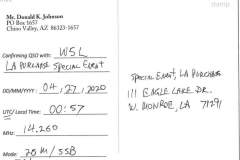 Mr. Donald K. Johnson
PO Box 1657
Chino Valley, AZ 86323-1657
Confirming QSO with: W5L
LA PURCHASE Special Event
DD/MM/YYYY: 04/27/2020
UTC/Local Time: 00:57
MHz: 14.260
Mode: 20M/SSB
Special Event, LA PURCHASE
111 EAGLE LAKE DR.
W. MONROE, LA 71291